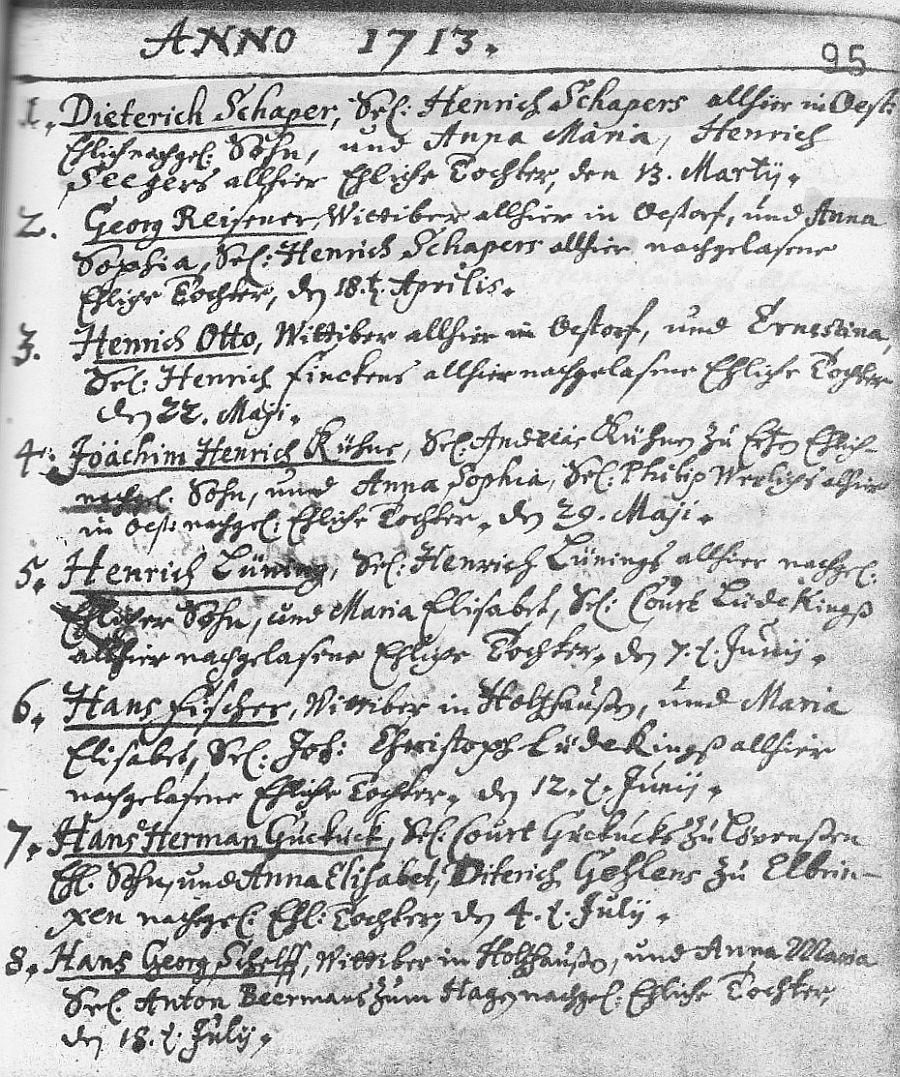 ANNO 1713.
95
1. Dieterich Schaper, Sel: Henrich Schapers allhier in Oest:
Ehlich nachgel: Sohn, und Anna Maria, Henrich
Seegers allhier Ehliche Tochter, den 13. Martij.
2. Georg Reisener, Wittiber allhier in Oestorf, und Anna
Sophia, Sel: Henrich Schapers allhier nachgelasene
Ehliche Tochter, den 18.t. Aprilis.
3. Henrich Otto, Wittiber allhier in Oestorf, und Ernestina,
Sel: Henrich Finckens allhier nachgelasene Ehliche Tochter
den 22. Maji.
4. Joachim Henrich Kühne, Sel. Andreae Kühnen zu Ehlich-
nachgel. Sohn, unnd Anna Sophia, Sel: Philip Werlichs alhier
in Oest: nachgel: Ehliche Tochter. den 29. Maji.
5. Henrich Lüning, Sel: Henrich Lünings allhier nachgel:
Ehlicher Sohn, und Maria Elisabet, Sel: Court Lüdekingß
allhier nachgelasene Ehliche Tochter. den 7.t. Junij.
6. Hans Fischer, Wittiber in Holtzhaußen, und Maria
Elisabet, Sel: Joh: Christoph Lüdekingß allhier
nachgelasene Ehliche Tochter. den 12.t. Junij.
7. Hans Herman Guckuck, Sel: Court Guckucks zu Lövenßen
Ehl. Sohn, und Anna Elisabet, Diterich Gehlens zu Elbrin-
xen nachgel: Ehl: Tochter, den 4.t. July.
8. Hans Georg Schelff, Wittiber in Holtzhaußen, und Anna Maria
Sel. Anton Beermans zum Hagen nachgel: Ehliche Tochter,
den 18.t. July.